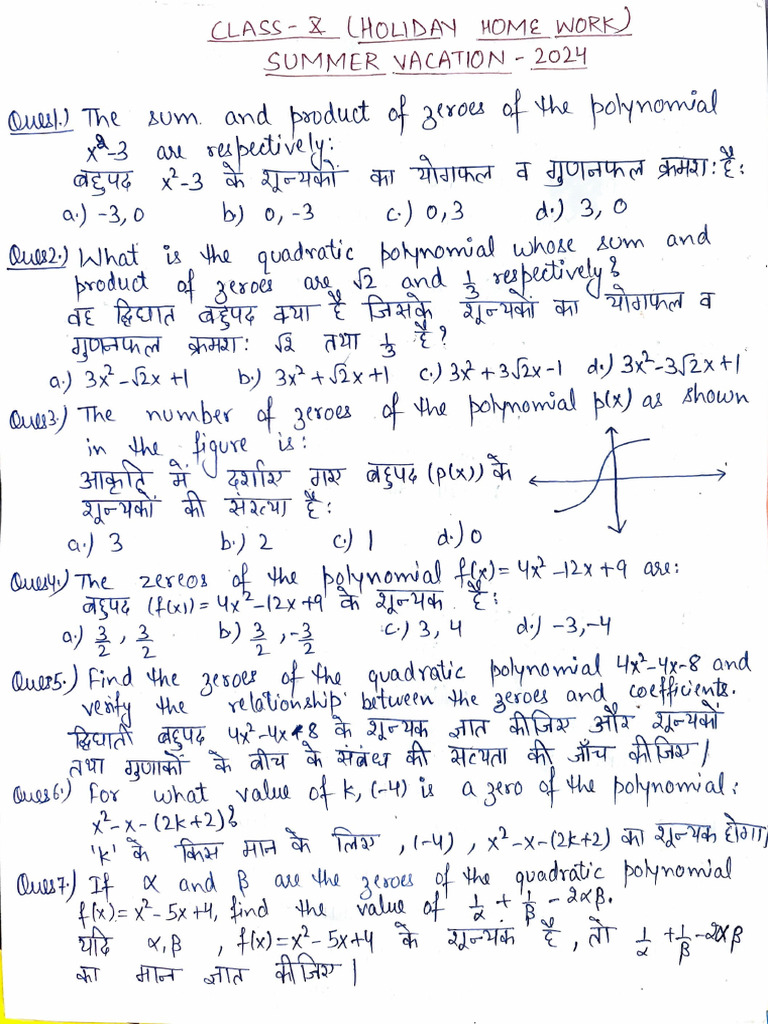 CLASS - X (HOLIDAY HOME WORK)
SUMMER VACATION - 2024
Ques1.) The sum and product of zeroes of the polynomial
x²-3 are respectively:
बहुपद x²-3 के शून्यकों का योगफल व गुणनफल क्रमशः है:
a.) -3, 0 b.) 0, -3 c.) 0, 3 d.) 3, 0
Ques2.) What is the quadratic polynomial whose sum and
product of zeroes are √2 and 1/3 respectively?
वह द्विघात बहुपद क्या है जिसके शून्यकों का योगफल व
गुणनफल क्रमशः √2 तथा 1/3 है?
a.) 3x²-√2x+1 b.) 3x²+√2x+1 c.) 3x²+3√2x-1 d.) 3x²-3√2x+1
Ques3.) The number of zeroes of the polynomial p(x) as shown
in the figure is:
आकृति में दर्शाए गए बहुपद (p(x)) के
शून्यकों की संख्या है:
a.) 3 b.) 2 c.) 1 d.) 0
Ques4.) The zereos of the polynomial f(x) = 4x²-12x+9 are:
बहुपद (f(x)) = 4x²-12x+9 के शून्यक है:
a.) 3/2, 3/2 b) 3/2, -3/2 c.) 3, 4 d.) -3, -4
Ques5.) Find the zeroes of the quadratic polynomial 4x²-4x-8 and
verify the relationship between the zeroes and coefficients.
द्विघाती बहुपद 4x²-4x-8 के शून्यक ज्ञात कीजिए और शून्यकों
तथा गुणाकों के बीच के संबंध की सत्यता की जाँच कीजिए।
Ques6.) For what value of k, (-4) is a zero of the polynomial:
x²-x-(2k+2)?
'k' के किस मान के लिए, (-4), x²-x-(2k+2) का शून्यक होगा।
Ques7.) If α and β are the zeroes of the quadratic polynomial
f(x) = x²-5x+4, find the value of 1/α + 1/β - 2αβ.
यदि α, β, f(x) = x²-5x+4 के शून्यक है, तो 1/α + 1/β - 2αβ
का मान ज्ञात कीजिए।